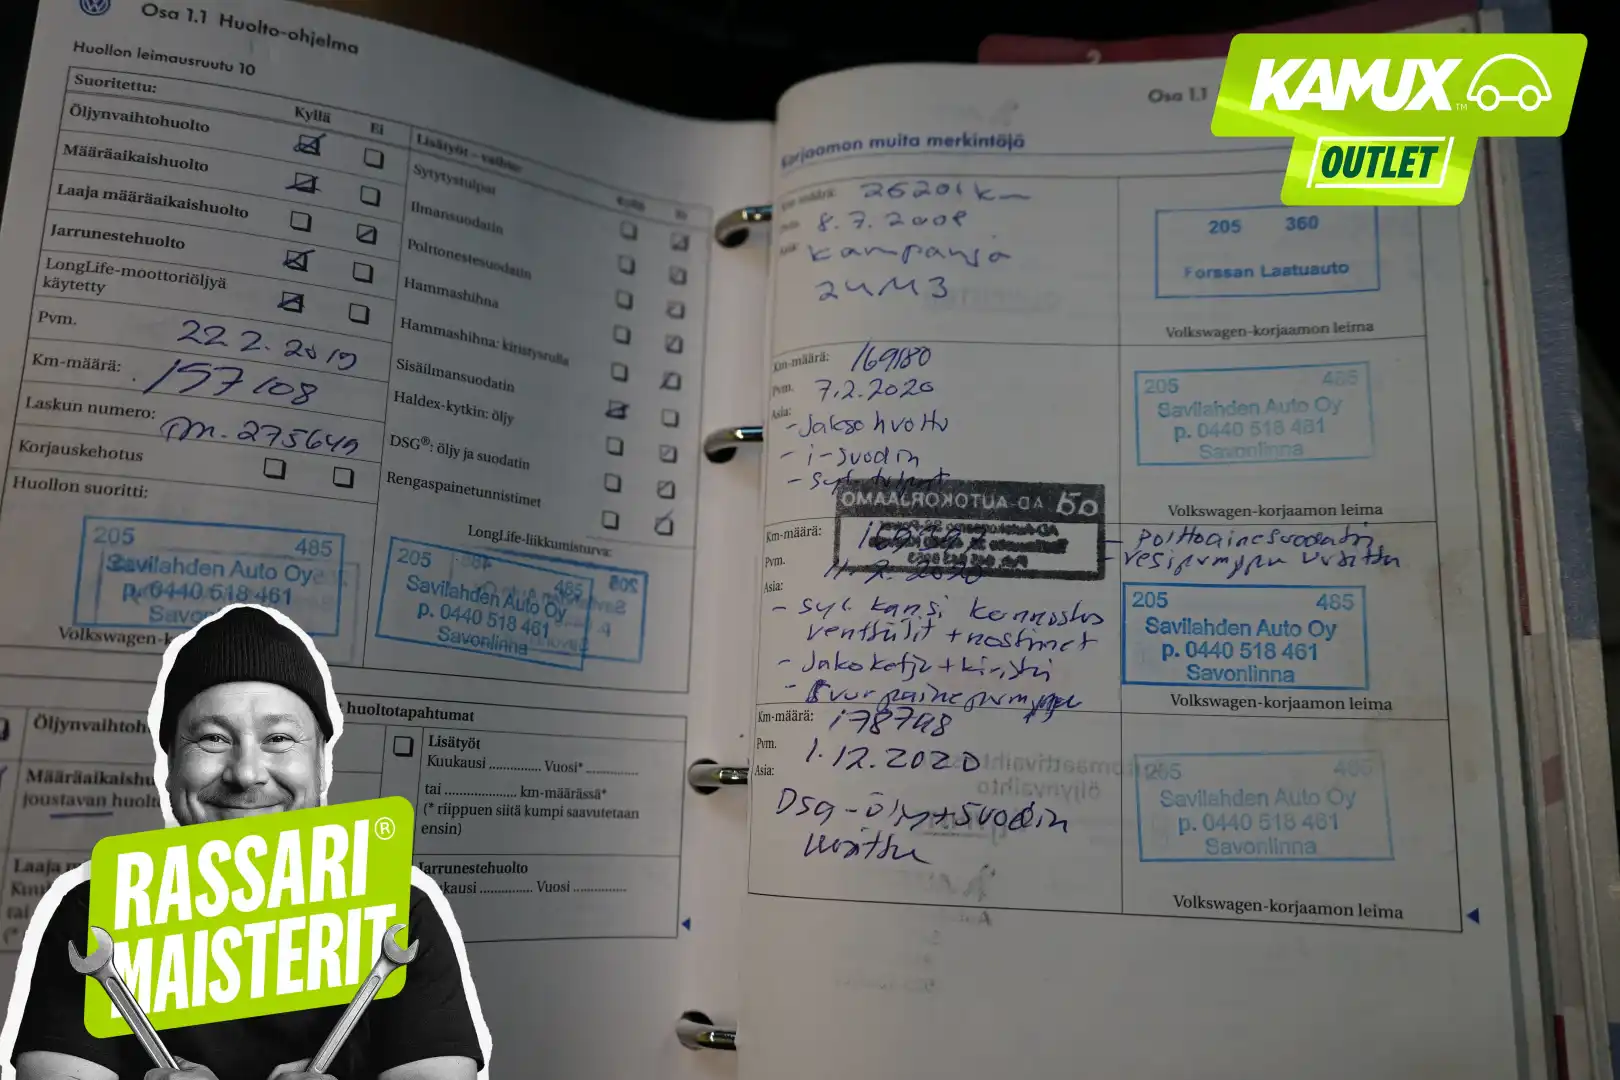 Osa 1.1 Huolto-ohjelma
Huollon leimausruutu 10
Suoritettu:
Kyllä Ei
Öljynvaihtohuolto
Määräaikaishuolto
Laaja määräaikaishuolto
Jarrunestehuolto
LongLife-moottoriöljyä
käytetty
Pvm.
22 2. 2019
Km-määrä:
157108
Laskun numero:
275649
Korjauskehotus
Huollon suoritti:
205 485
Savilahden Auto Oy
p. 0440 518 461
Volkswagen-k
Lisätyöt - vaihto:
Kyllä Ei
Sytytystulpat
Ilmansuodatin
Polttonestesuodatin
Hammashihna
Hammashihna: kiristysrulla
Sisäilmansuodatin
Haldex-kytkin: öljy
DSG®: öljy ja suodatin
Rengaspainetunnistimet
LongLife-liikkumisturva:
205 485
Savilahden Auto Oy
p. 0440 518 461
Savonlinna
t huoltotapahtumat
Öljynvaihtoh
Määräaikaishu
joustavan huolt
Laaja
Lisätyöt
Kuukausi .............. Vuosi* ..............
tai .................... km-määrässä*
(* riippuen siitä kumpi saavutetaan
ensin)
Jarrunestehuolto
Vuosi ..............
Osa 1.1
Korjaamon muita merkintöjä
26201 km
8.7.2008
kampanja
24M3
205 360
Forssan Laatuauto
Volkswagen-korjaamon leima
Km-määrä: 169180
Pvm. 7.2.2020
Asia:
- Jakso huolto
- i-suodin
- syt tulpat
205 485
Savilahden Auto Oy
p. 0440 518 461
Savonlinna
Volkswagen-korjaamon leima
AD-AUTOKORJAAMO
Km-määrä:
Pvm. 11.2.2020
Asia:
- polttoainesuodatin
- vesipumppu vaihttu
- syl. kansi kunnostus
venttiilit + nostimet
- Jakoketju + kiristin
- suurpainepumppu
205 485
Savilahden Auto Oy
p. 0440 518 461
Savonlinna
Volkswagen-korjaamon leima
Km-määrä: 178748
Pvm. 1.12.2020
Asia:
Dsg - öljy + suodin
vaihttu
Savilahden Auto Oy
p. 0440 518 461
Savonlinna
Volkswagen-korjaamon leima
KAMUX™
OUTLET
RASSARI®
MAISTERIT